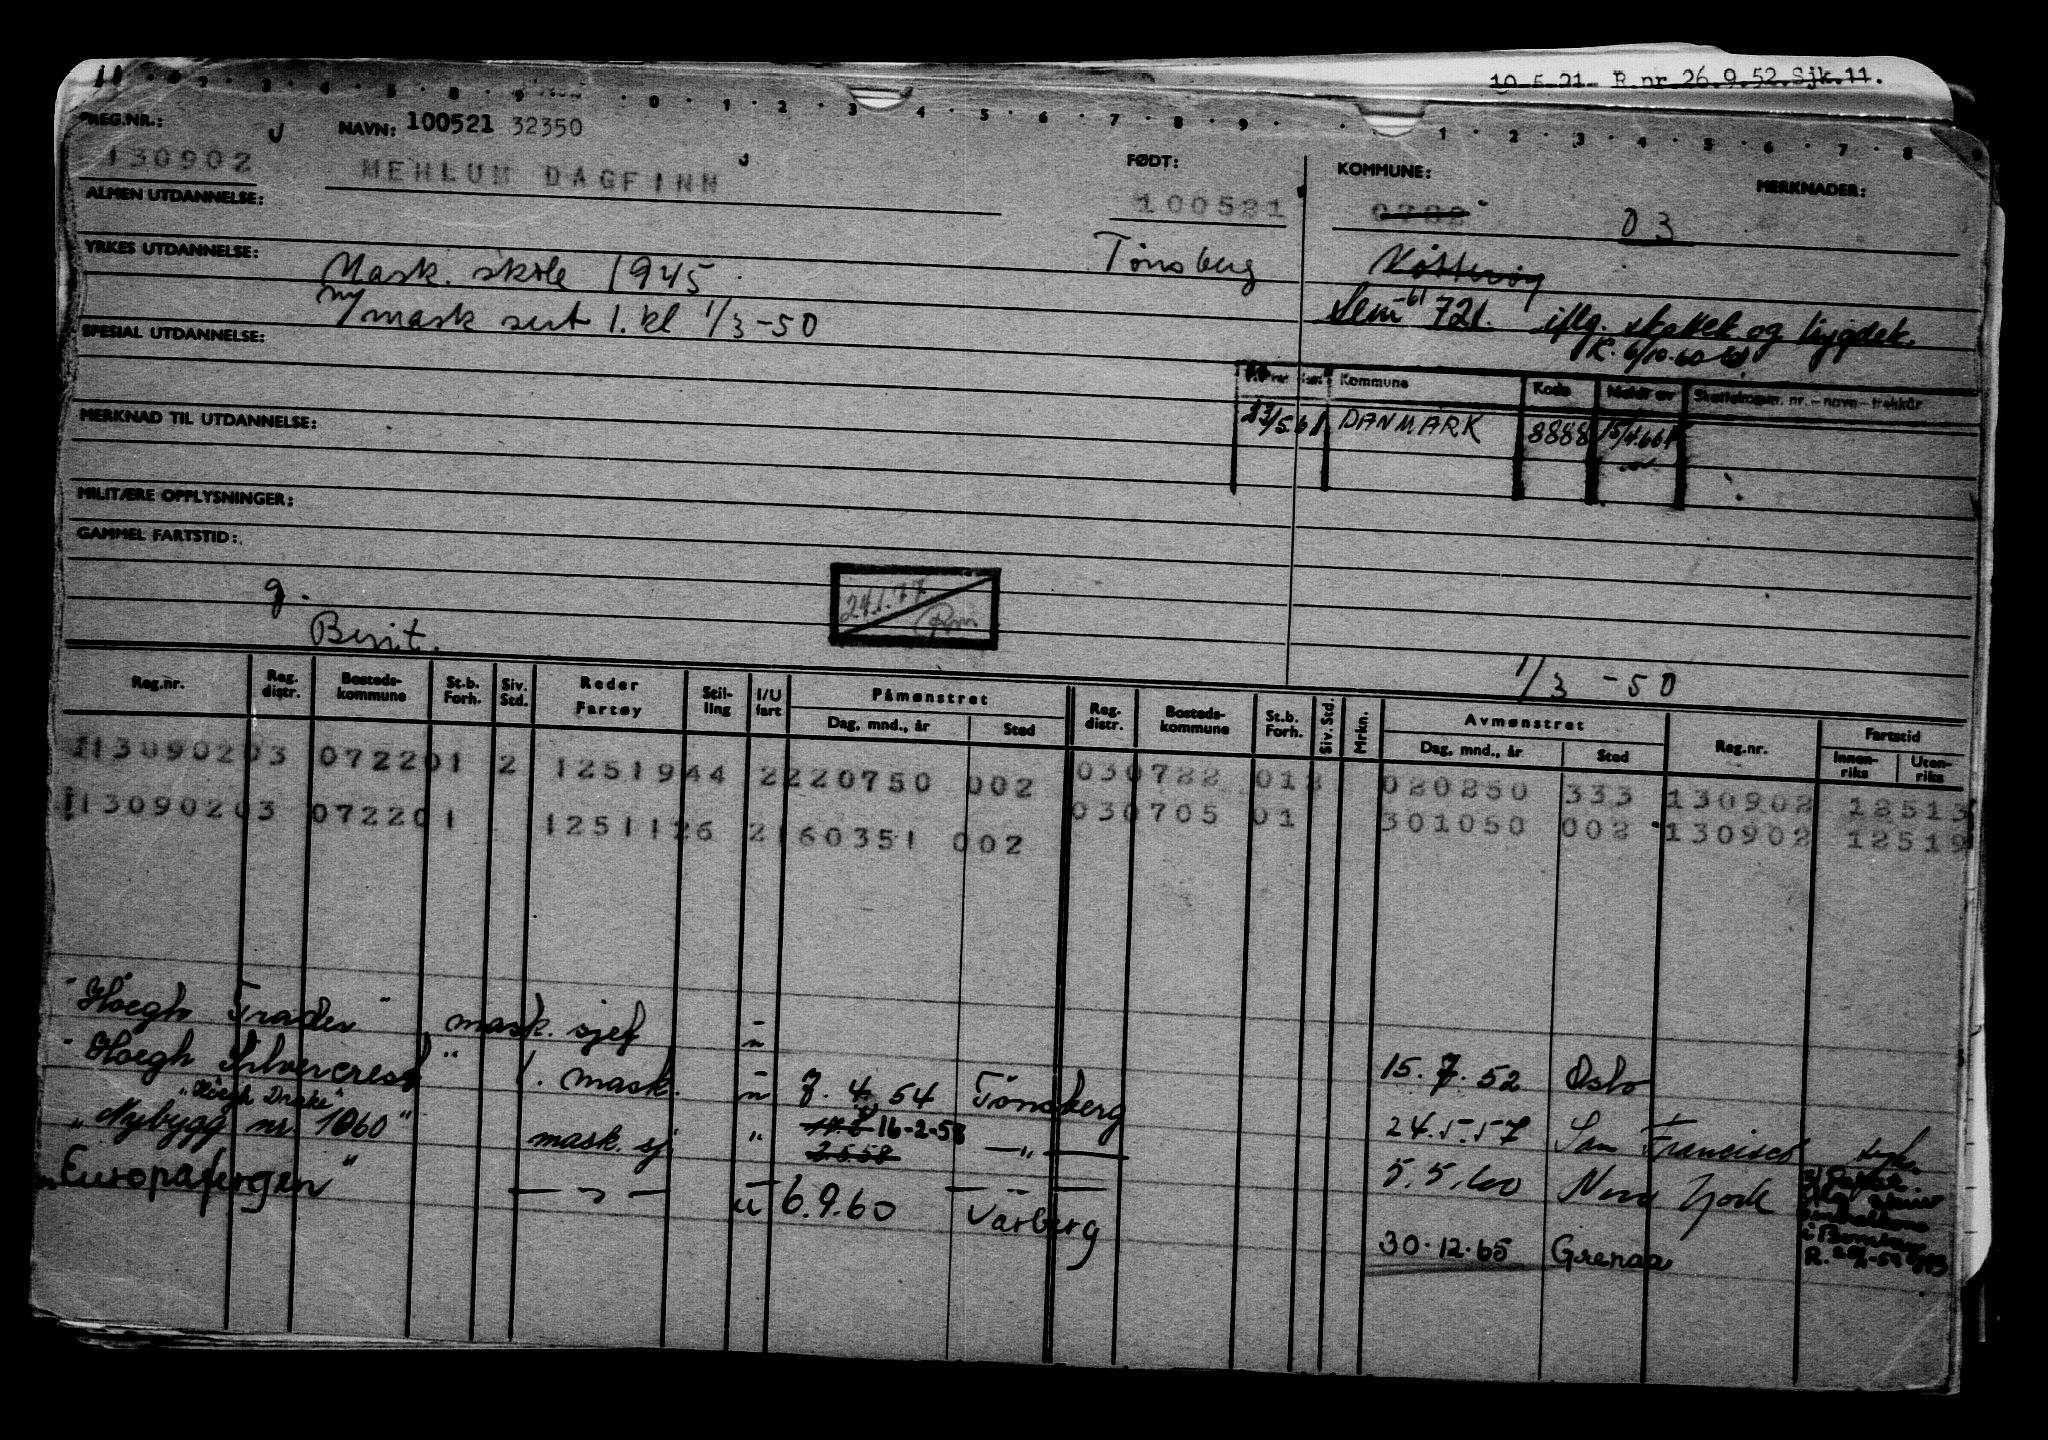 10.5.21 R.nr 26.9.52.Sjk.11.
REG.NR.: NAVN: 100521 32350 FØDT: KOMMUNE: MERKNADER:
130902 MEHLUM DAGFINN 100521 03
ALMEN UTDANNELSE: Tønsberg Nøtterøy
YRKES UTDANNELSE: Mask. skole 1945
Sem -61 721. iflg. skattek og trygdek.
ny mask sert 1. kl 1/3-50
R. 6/10-60
SPESIAL UTDANNELSE:
Kommune Kode Meldt av Skattelagon. nr. - navn - trekkår
23/5.61 DANMARK 8888 15/4.66
MERKNAD TIL UTDANNELSE:
MILITÆRE OPPLYSNINGER:
GAMMEL FARTSTID:
24.1.77
g.
Berit.
1/3 -50
Reg.nr. Reg. distr. Bosteds-kommune St.b. Forh. Siv. Std. Reder Fartøy Stil-ling I/U fart Påmønstret Dag, mnd., år Sted Reg. distr. Bosteds-kommune St.b. Forh. Siv. Std. Mrkn. Avmønstret Dag, mnd., år Sted Reg.nr. Fartstid Innen-riks Uten-riks
113090203 072201 2 1251944 2220750 002 030722 012 020250 333 130902 12513
113090203 072201 1251126 2160351 002 030705 01 301050 002 130902 12519
"Høegh Trader" mask. sjef u 15.7.52 Oslo
"Høegh Silvercrest" 1. mask. u 7.4.54 Tønsberg 24.5.57 San Francisco syk.
"Høegh Drake"
"Nybygg nr. 1060" mask. sj " 16-2-58 —"— 5.5.60 New York
2.5.58
"Europafergen" — " — u 6.9.60 Varberg 30.12.65 Grenaa
i Bombay